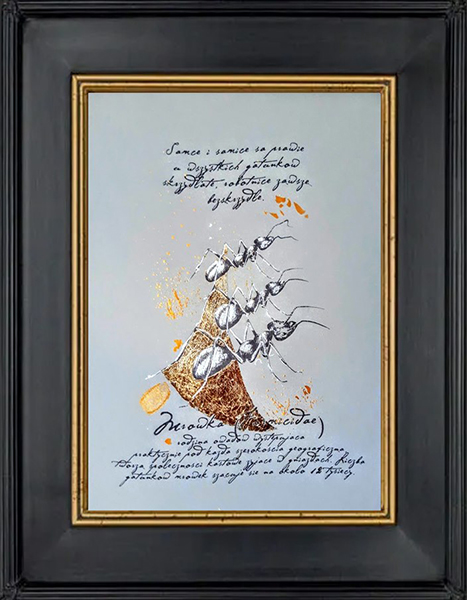 Samce i samice są prawie
u wszystkich gatunków
skrzydlate, robotnice zawsze
bezskrzydłe.
Mrówka (Formicidae)
rodzina owadów występująca
praktycznie pod każdą szerokością geograficzną.
Tworzą społeczności kastowe żyjące w gniazdach. Liczba
gatunków mrówek szacuje się na około 12 tysięcy.